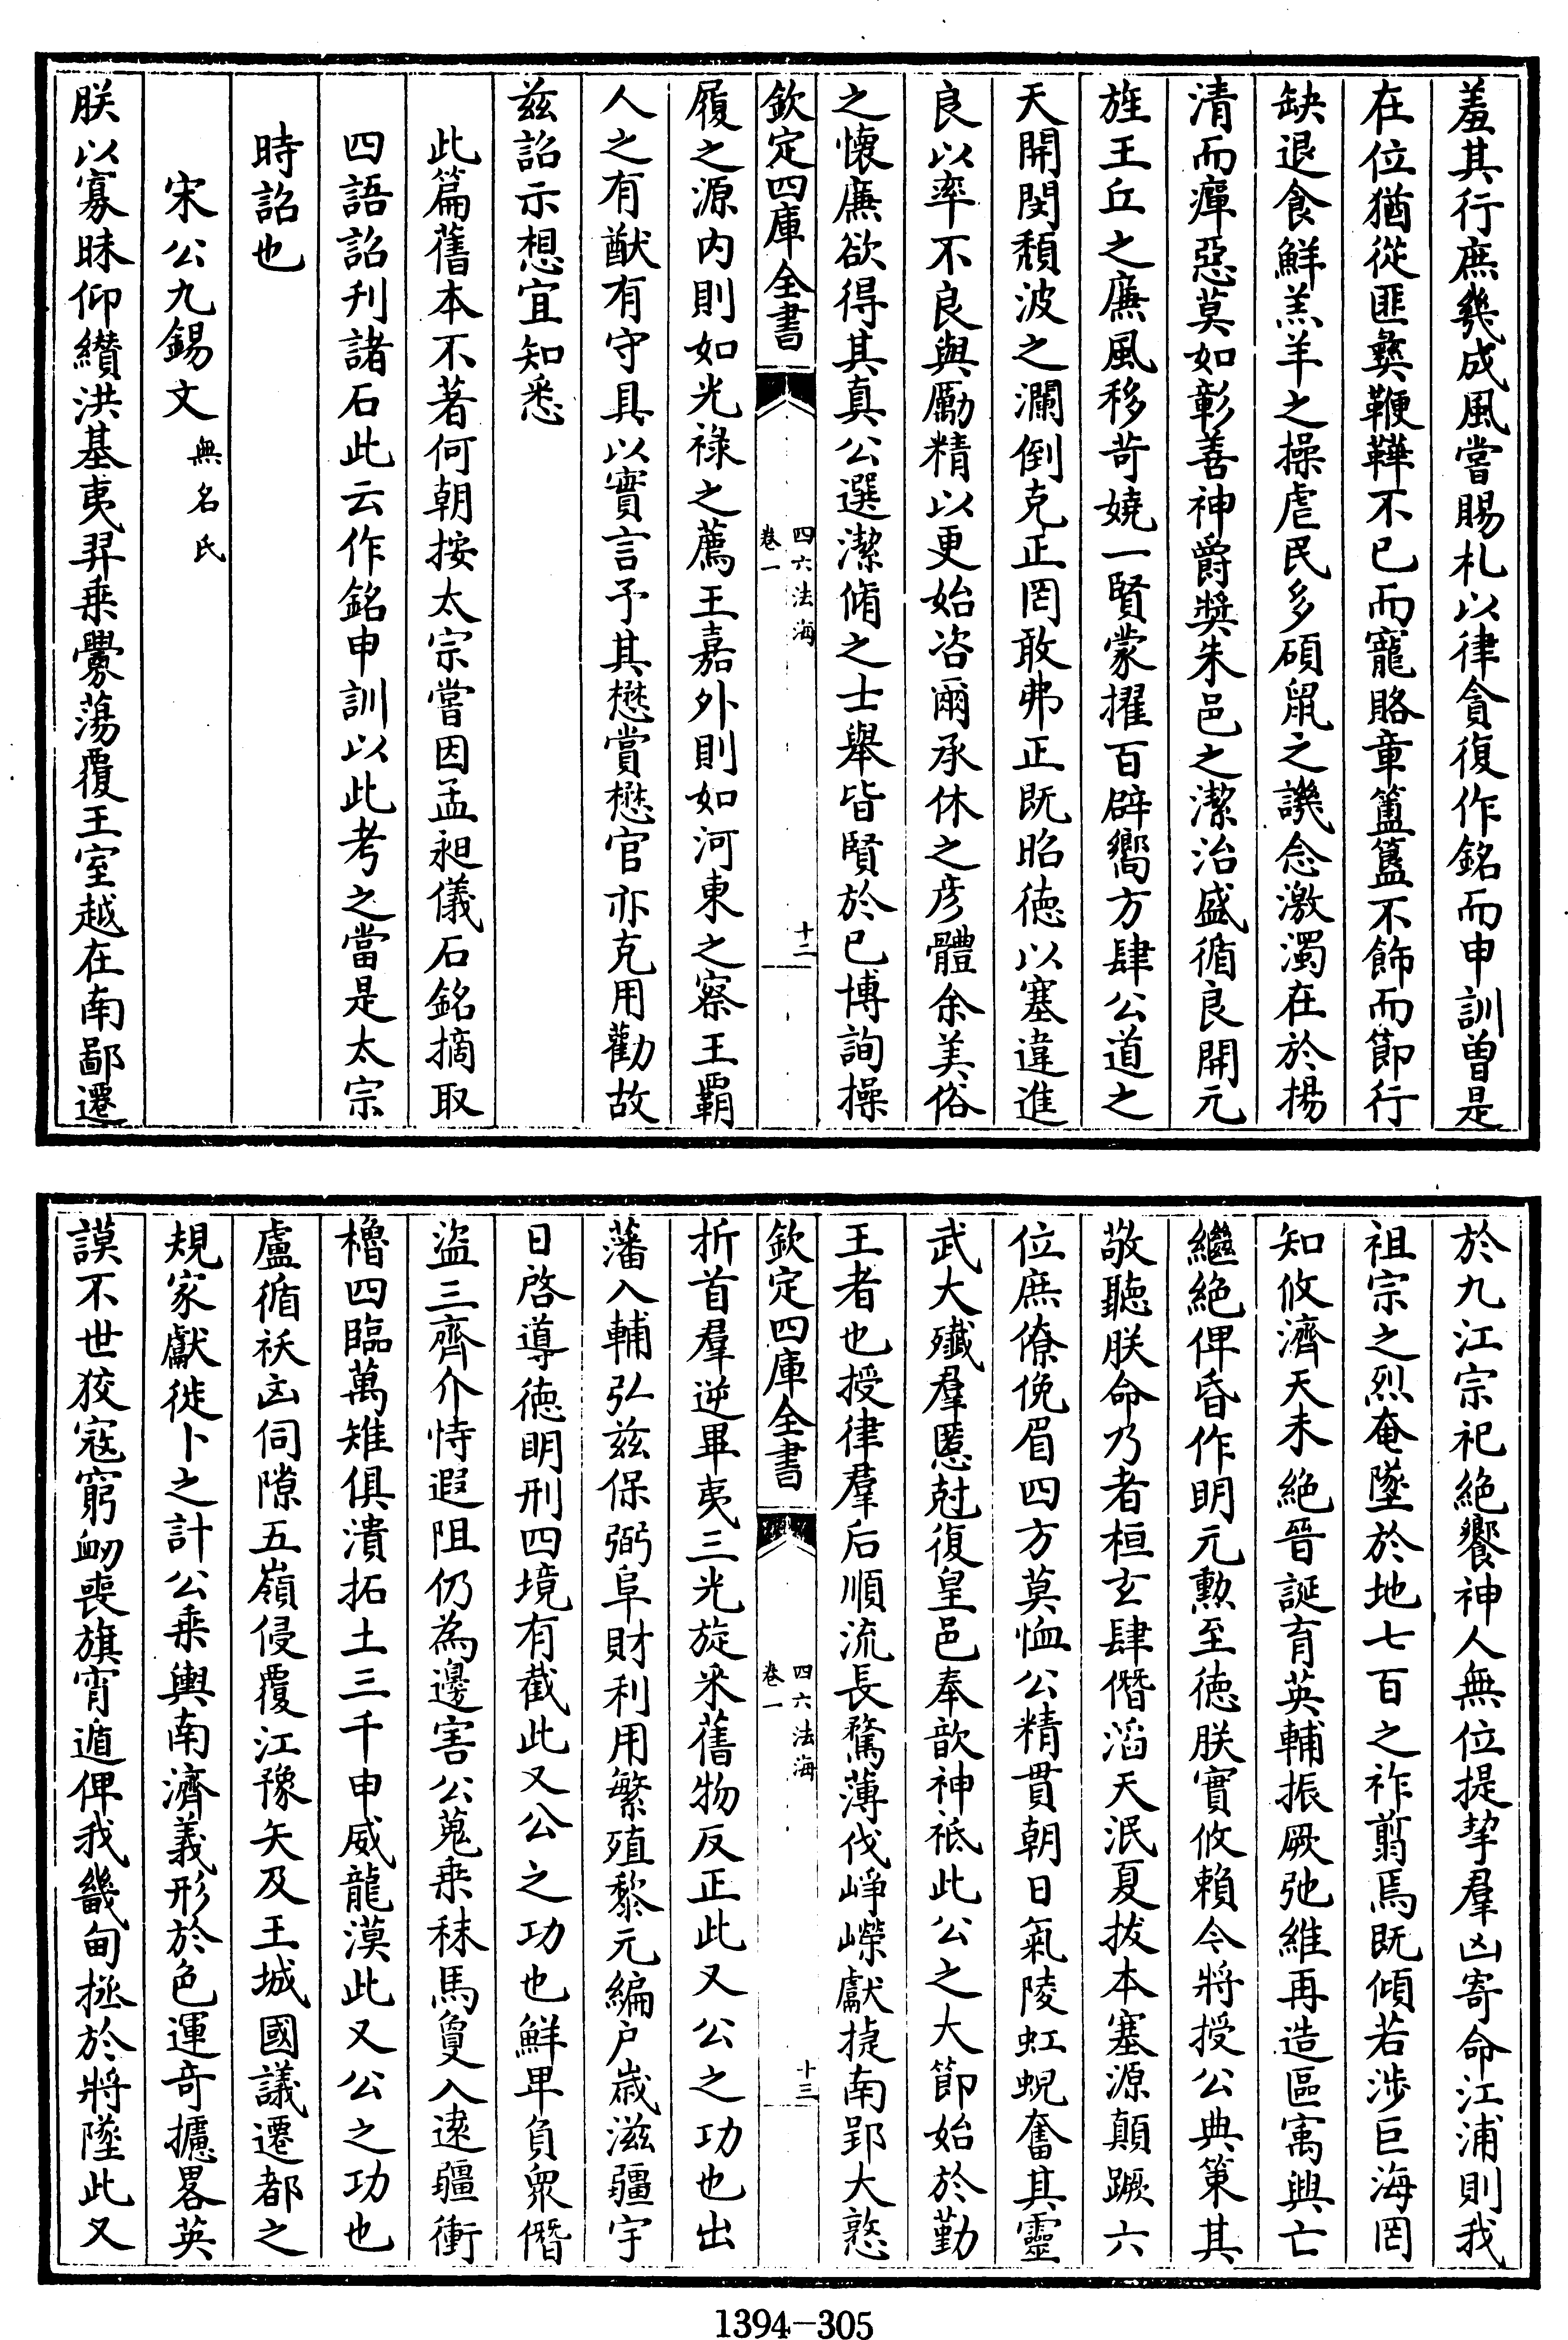 羞其行庶幾成風嘗賜札以律貪復作銘而申訓曽是
在位猶從匪彜鞭鞾不已而寵賂章簠簋不飾而節行
缺退食鮮羔羊之操虐民多碩鼠之譏念激濁在於揚
清而癉惡莫如彰善神爵奬朱邑之潔治盛循良開元
旌王丘之廉風移苛嬈一賢蒙擢百辟嚮方肆公道之
天開閔頽波之瀾倒克正罔敢弗正既昭徳以塞違進
良以率不良與勵精以更始咨爾承休之彦體余美俗
之懐廉欲得其真公選潔脩之士舉皆賢於已博詢操
欽定四庫全書
四六法海
卷一
十二
履之源内則如光祿之薦王嘉外則如河東之察王覇
人之有猷有守具以實言予其懋賞懋官亦克用勸故
兹詔示想宜知悉
此篇舊本不著何朝按太宗嘗因孟昶儀石銘摘取
四語詔刋諸石此云作銘申訓以此考之當是太宗
時詔也
宋公九錫文無名氏
朕以寡昧仰纘洪基夷羿乗舋蕩覆王室越在南鄙遷
於九江宗祀絶饗神人無位提挈羣凶寄命江浦則我
祖宗之烈奄墜於地七百之祚翦焉既傾若渉巨海罔
知攸濟天未絶晉誕育英輔振厥弛維再造區寓興亡
繼絶俾昏作明元勲至徳朕實攸賴今將授公典策其
敬聽朕命乃者桓玄肆僭滔天泯夏拔本塞源顛蹶六
位庶僚俛眉四方莫恤公精貫朝日氣陵虹蜺奮其靈
武大殲羣慝尅復皇邑奉歆神祗此公之大節始於勤
王者也授律羣后順流長騖薄伐崢嶸獻捷南郢大憝
欽定四庫全書
四六法海
卷一
十三
折首羣逆畢夷三光旋釆舊物反正此又公之功也出
藩入輔弘兹保弼阜財利用繁殖黎元編户歳滋疆宇
日啓導徳明刑四境有截此又公之功也鮮卑負衆僭
盗三齊介恃遐阻仍為邊害公蒐乗秣馬敻入逺疆衝
櫓四臨萬雉俱潰拓土三千申威龍漠此又公之功也
盧循祅凶伺隙五嶺侵覆江豫矢及王城國議遷都之
規家獻徙卜之計公乗輿南濟義形於色運竒攄畧英
謨不世狡寇窮衂喪旗宵遁俾我畿甸拯於將墜此又
1394-305